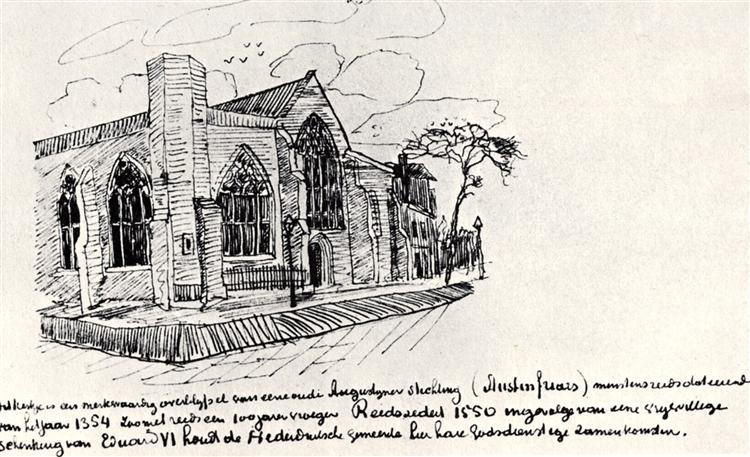 Het kerkje is een merkwaardig overblijfsel van eene oude Augustyner stichting (Austinfriars) minstens reeds dateerende
van het jaar 1354 zoo niet reeds een 100 jaren vroeger Reeds sedert 1550 ingevolge van eene vrijwillige
schenking van Eduard VI houdt de Nederduitsche gemeente hier hare Godsdienstige zamenkomsten.